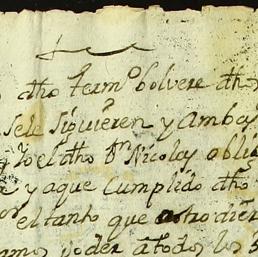 dho termº bolvere dho
se le siguieren y ambas
Yo el dho Dn Nicolas obli
y aque cumplido dho
el tanto que
poder a todos los